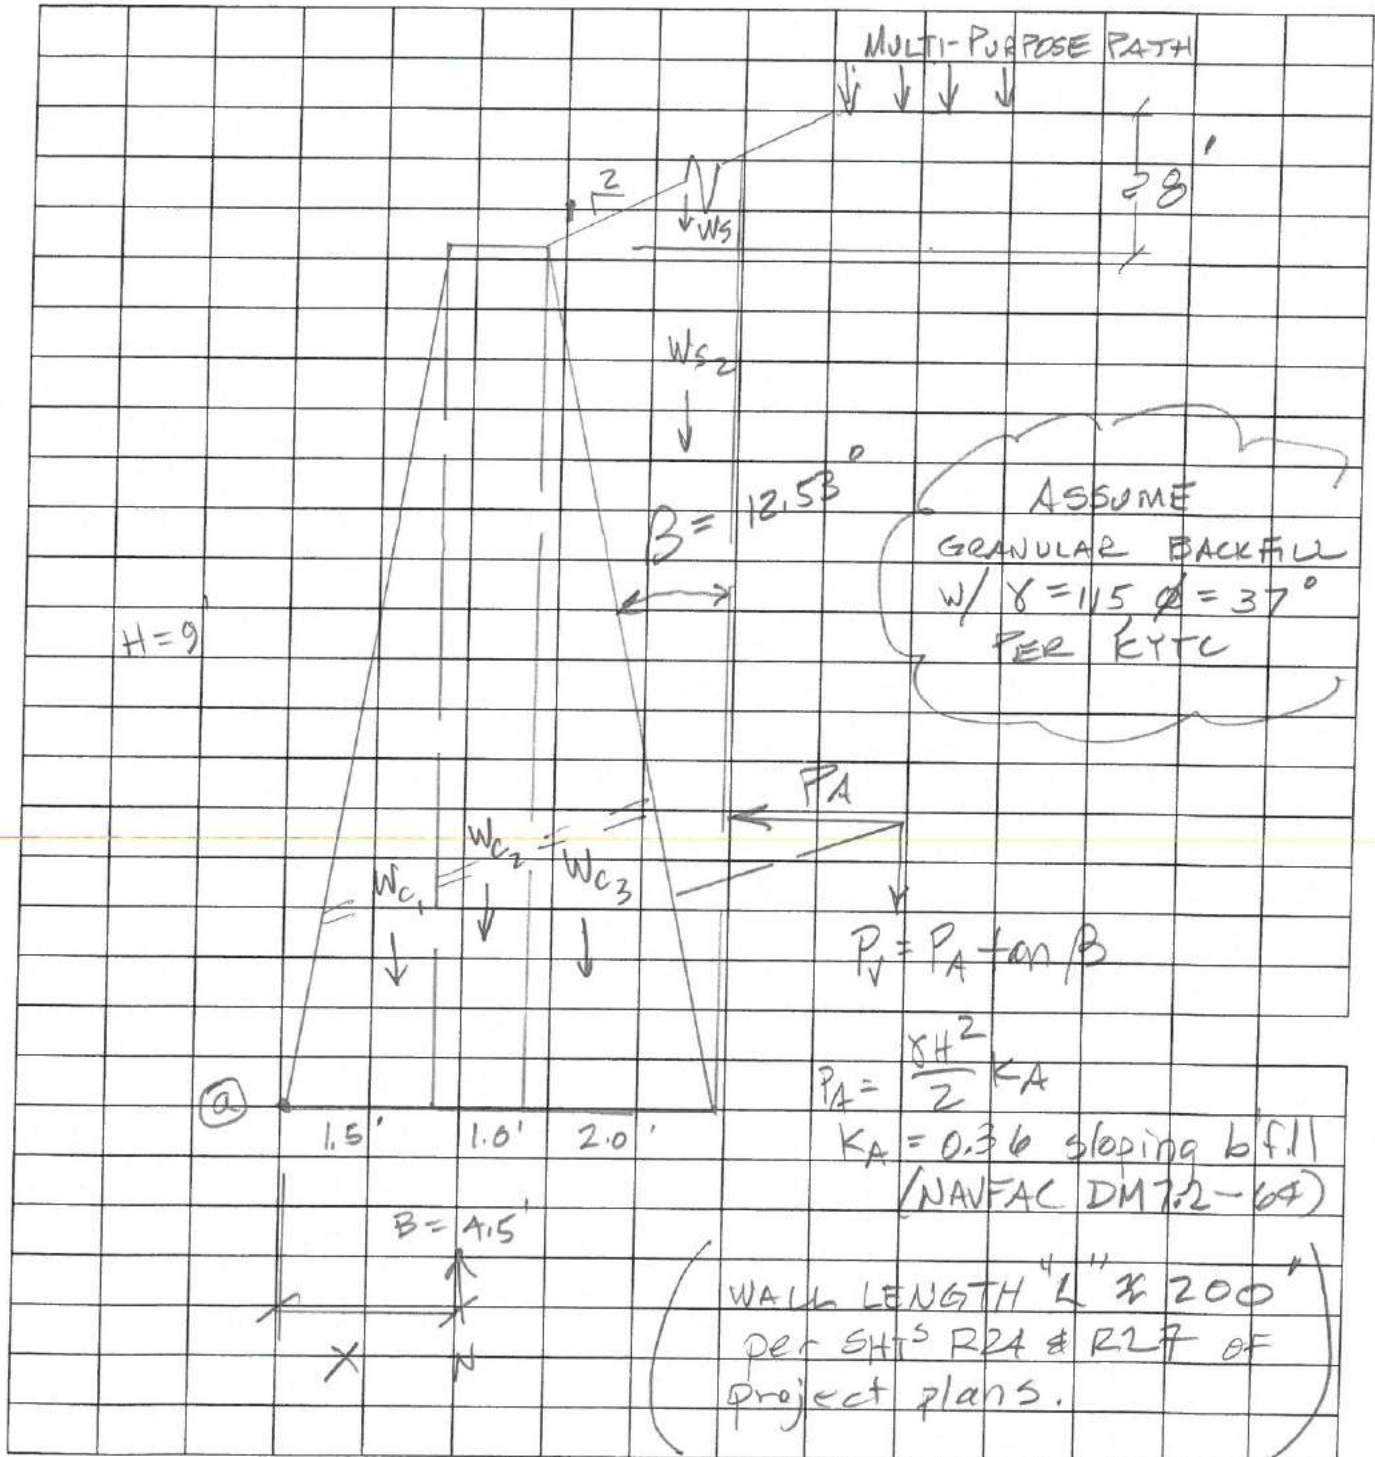 MULTI-PURPOSE PATH
2
1
WS
28'
WS2
β = 12.53°
ASSUME
GRANULAR BACKFILL
W/ γ = 115, φ = 37°
PER KYTC
H = 9'
PA
WC1
WC2
WC3
PV = PA tan β
PA = γH²/2 KA
KA = 0.36 sloping b'fill
(NAVFAC DM 7.2-64)
a
1.5' 1.0' 2.0'
B = 4.5'
X N
WALL LENGTH "L" ≈ 200'
per SHTS R24 & R27 OF
project plans.